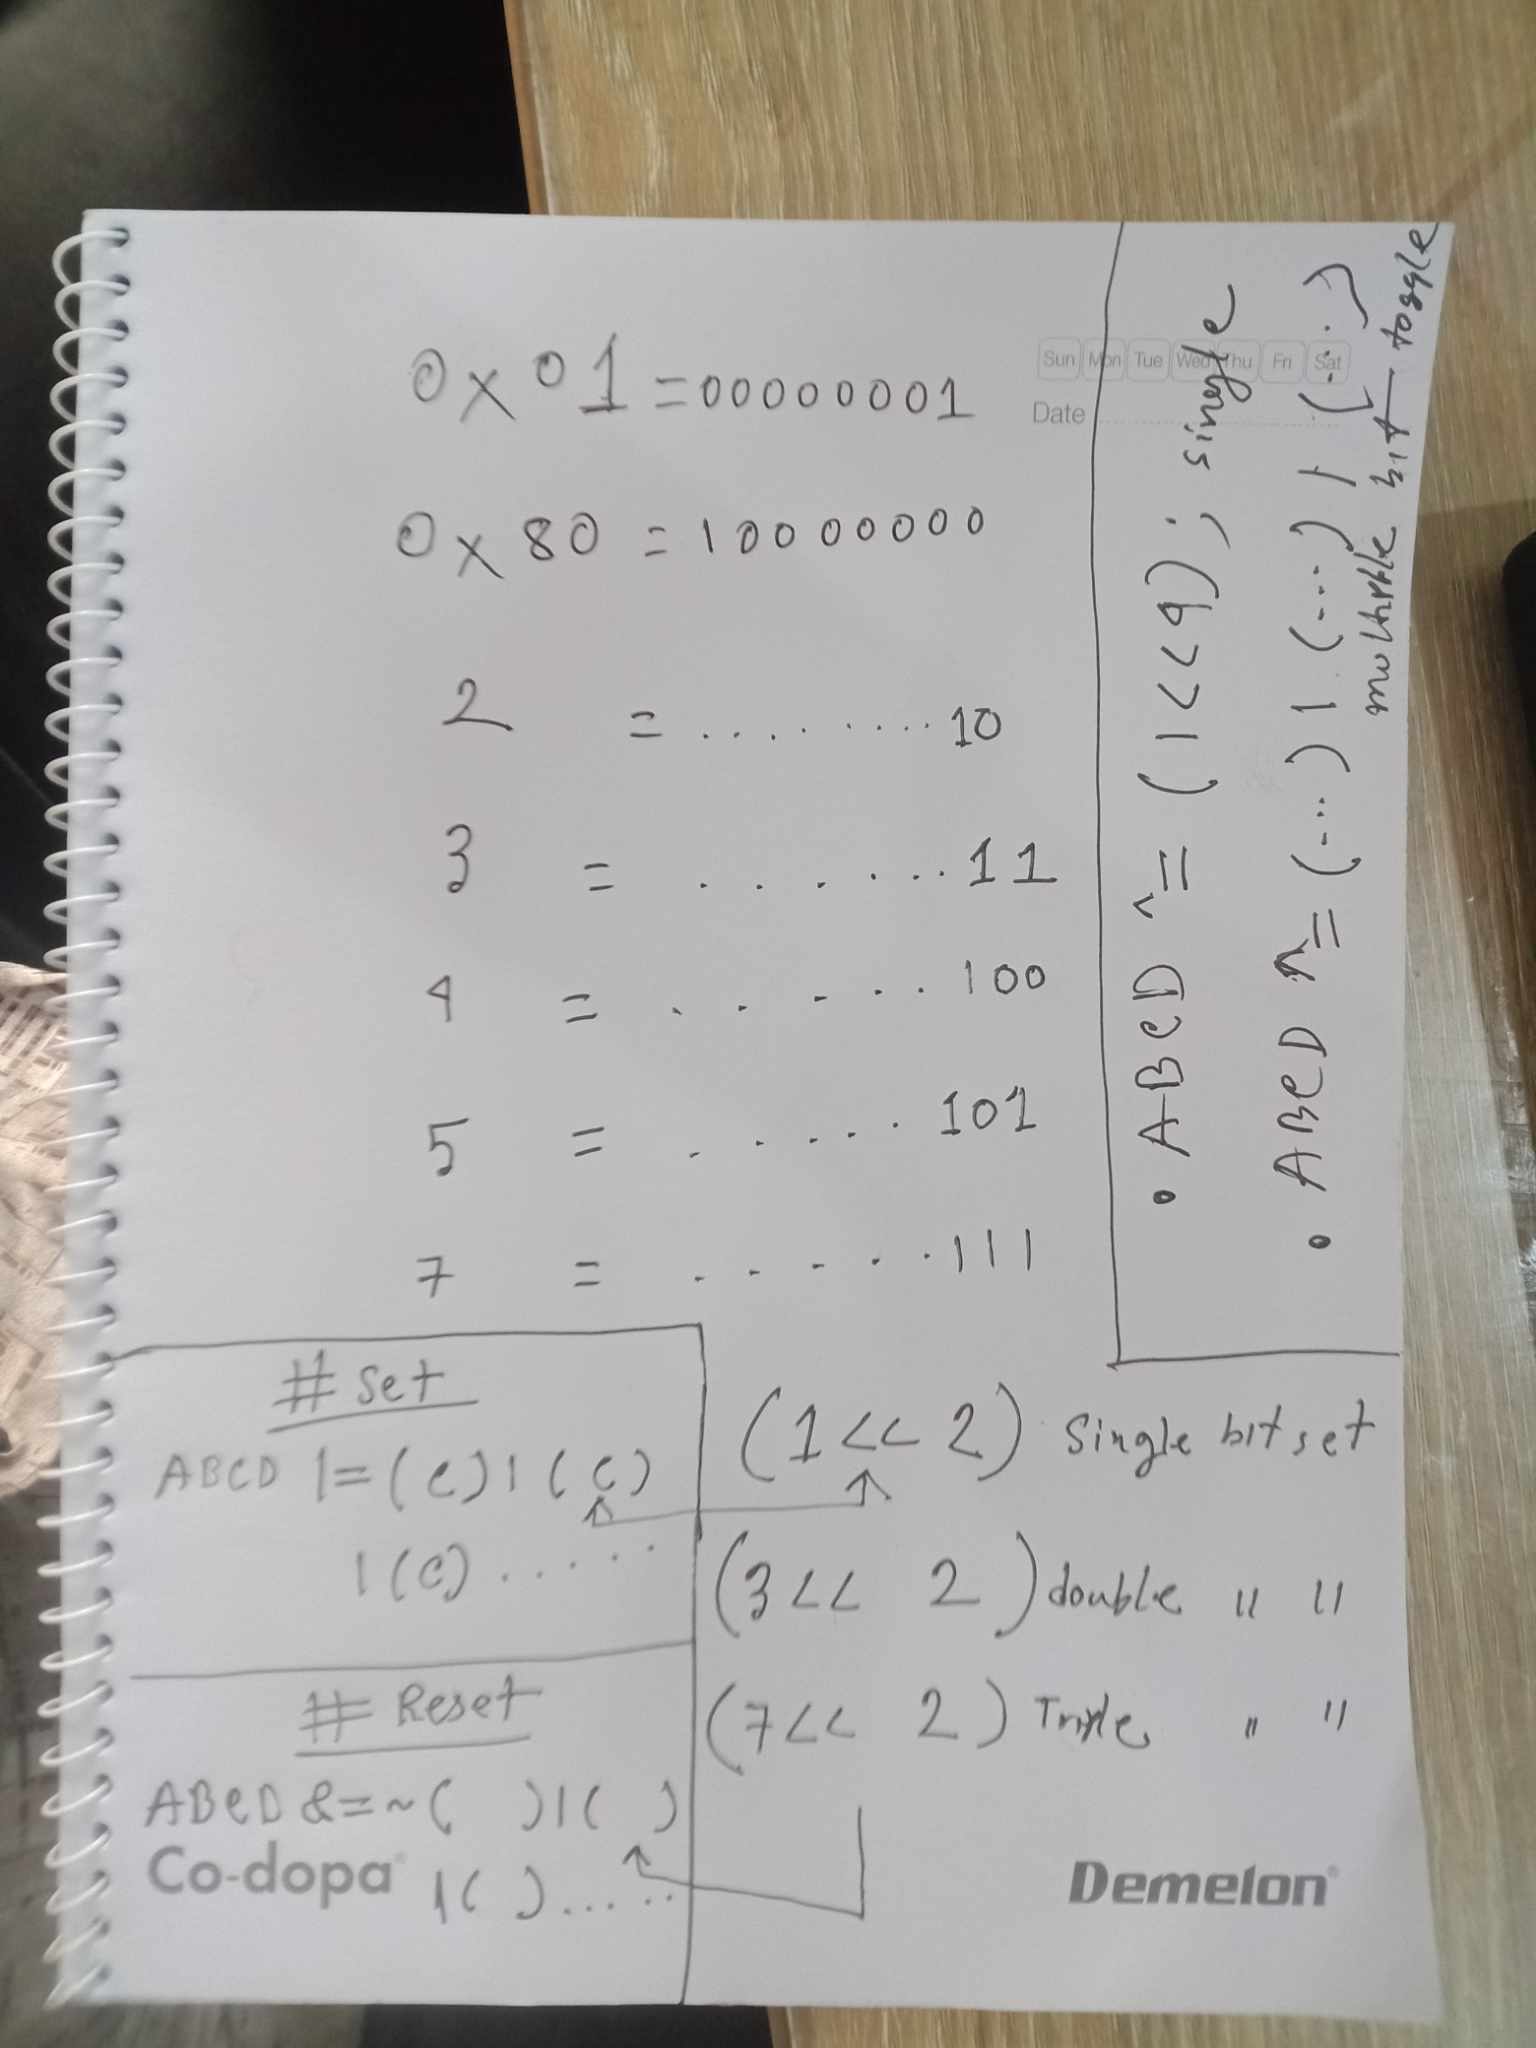 Sun Mon Tue Wed Thu Fri Sat
Date
0x01 = 00000001
0x80 = 10000000
2 = ......... 10
3 = ....... 11
4 = ...... 100
5 = ...... 101
7 = ..... 111
• ABCD ^= (1<<9); single
• ABCD ^= (...) | (...) | (...)
multiple bit toggle
# Set
ABCD |= (C) | (C)
| (C) .....
(1<<2) Single bit set
(3<< 2) double " "
(7<< 2) Triple " "
# Reset
ABCD &= ~( ) | ( )
| ( ) .....
Co-dopa
Demelon®